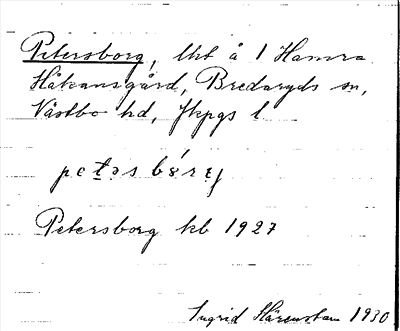 Petersborg, lht å 1 Hamra
Håkansgård, Bredaryds sn,
Västbo hd, Jkpgs l.
Petersborg kb 1927
Ingrid Härenstam 1930